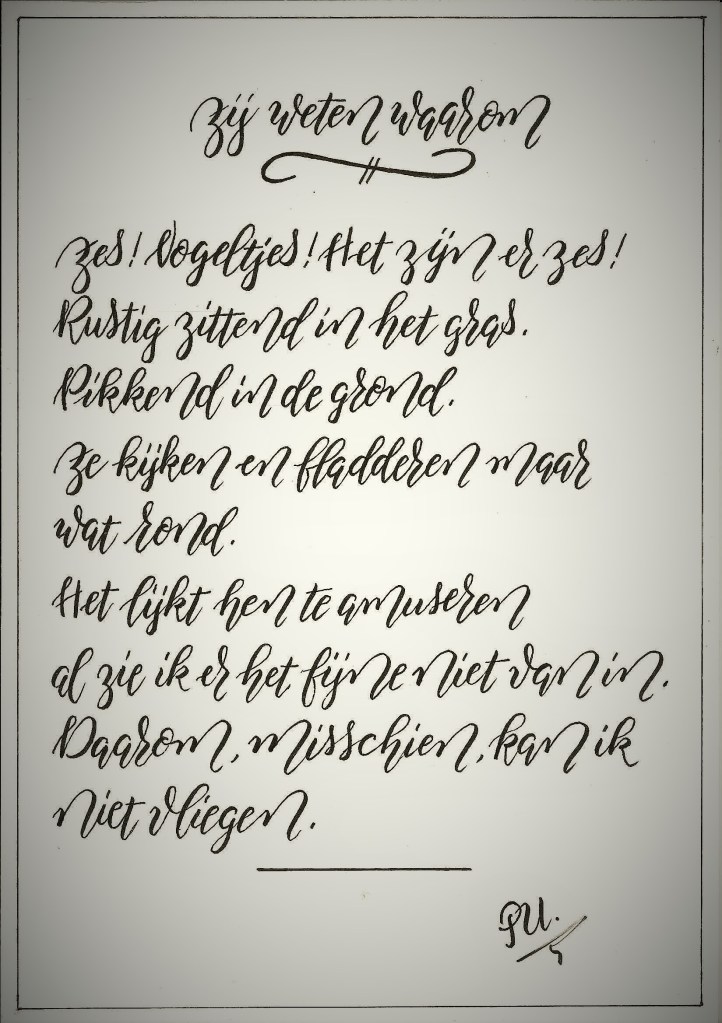 zij weten waarom
Zes! Vogeltjes! Het zijn er zes!
Rustig zittend in het gras.
Pikkend in de grond.
Ze kijken en fladderen maar
wat rond.
Het lijkt hen te amuseren
al zie ik er het fijne niet van in.
Daarom, misschien, kan ik
niet vliegen.
PU.